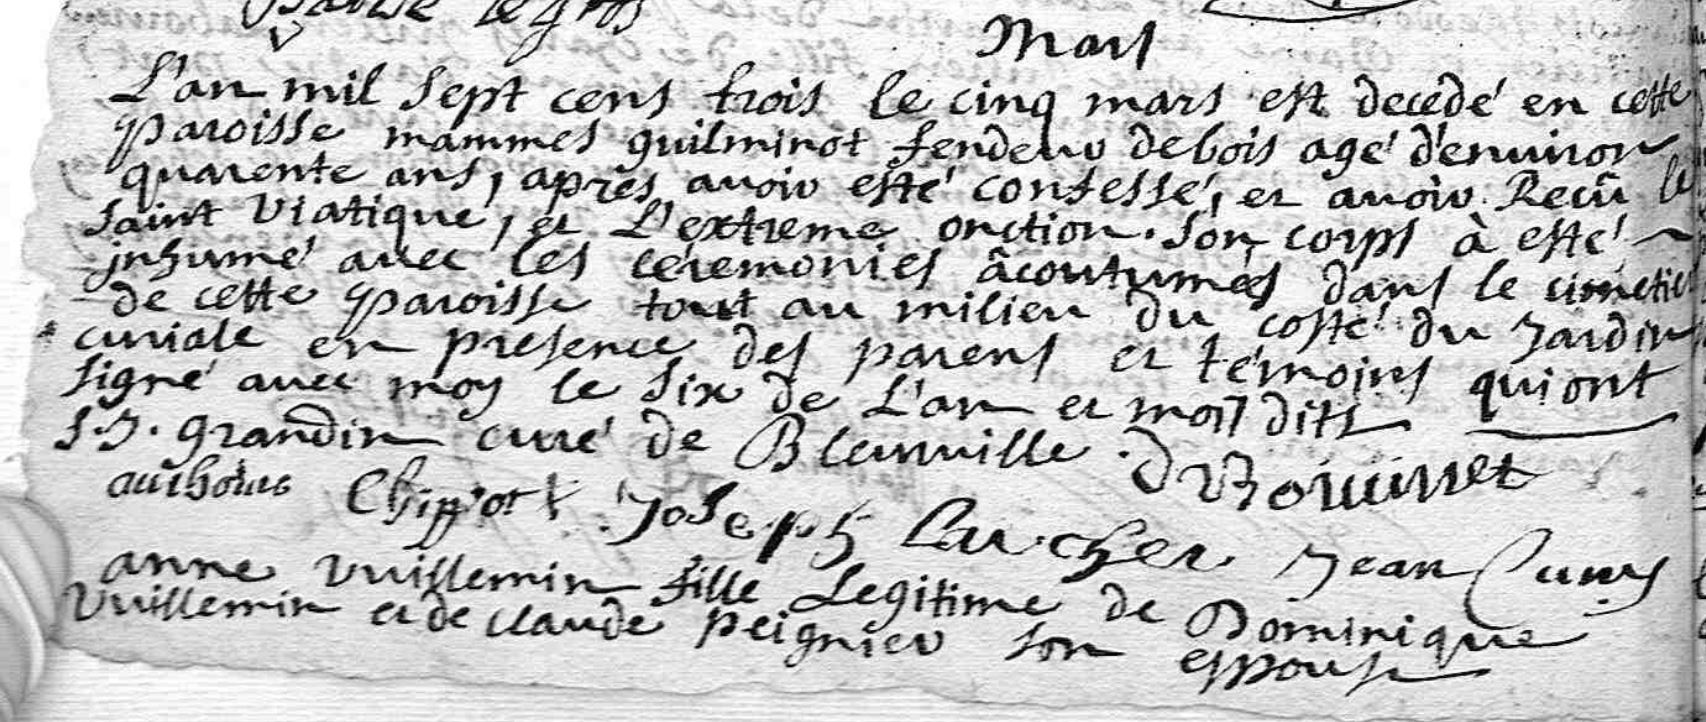 le gros
Mars
L'an mil sept cens trois le cinq mars est decedé en cette
paroisse mammes guilminot fendeur de bois agé d'enuiron
quarente ans, apres auoir esté confessé, et auoir Recû le
saint Viatique, et L'extreme onction. Son corps à esté
jnhumé auec les ceremonies âcoutumés dans le cimetie
de cette paroisse tout au milieu du costé du Jardin
curiale en presence des parens et témoins qui ont
signé auec moy le six de L'an et mois dits
grandin curé de Bleurville.
Chippot Joseph Larcher Jean Cuny
anne Vuillemin fille Legitime de Dominique
Vuillemin et de claude peignier son espouse